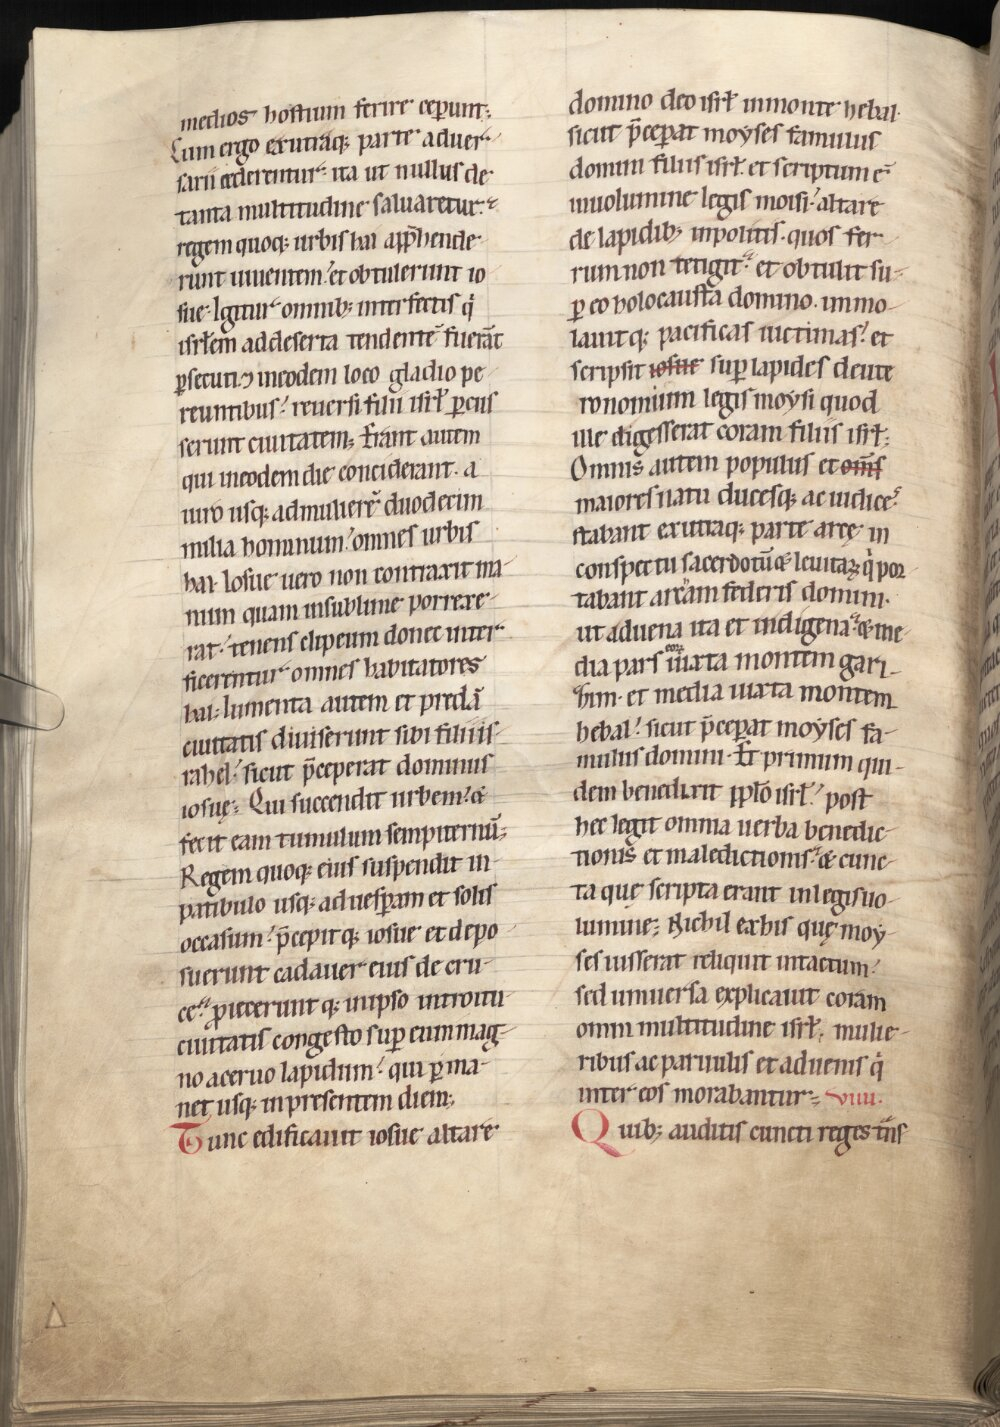 medios hostium ferire cẹperunt;
Cum ergo ex utraq; parte aduer-
sarii cẹderentur. ita ut nullus de
tanta multitudine saluaretur. &
regem quoq; urbis hai app̄hende-
runt uiuentem. et obtulerunt io-
sue. Igitur omnib; interfectis q̇
isr̄lem ad deserta tendentē fuerāt
ꝑsecuti. & in eodem loco gladio pe-
reuntibus. reuersi filii isr̄l ꝑcus
serunt ciuitatem; Erant autem
qui in eodem die conciderant. a
uiro usq; ad mulierē duodecim
milia hominum. omnes urbis
hai. Iosue uero non contraxit ma-
num quam in sublime porrexe-
rat. tenens clipeum donec inter
ficerentur omnes habitatores
hai. Iumenta autem et predā
ciuitatis diuiserunt sibi filii is-
rahel. sicut p̄ceperat dominus
iosuę; Qui succendit urbem. &
fecit eam tumulum sempiternū;
Regem quoq; eius suspendit in
patibulo usq; ad uesꝑam et solis
occasum. p̄cepitq; iosue et depo-
suerunt cadauer eius de cru-
ce. ꝓieceruntq; in ipso introitu
ciuitatis congesto suꝑ eum mag-
no aceruo lapidum. qui ꝑma-
net usq; in presentem diem;
Tunc edificauit iosue altare
domino deo isr̄l in monte hebal.
sicut p̄ceꝑat moyses famulus
domini filiis isr̄l. et scriptum ē
in uolumine legis moisi. altare
de lapidib; inpolitis. quos fer-
rum non tetigit. et obtulit su-
ꝑ eo holocausta domino. immo-
lauitq; pacificas uictimas. et
scripsit iosue suꝑ lapides deute
ronomium legis moysi quod
ille digesserat coram filiis isr̄l;
Omnis autem populus et om̄s
maiores natu ducesq; ac iudices
stabant ex utraq; parte arcę in
conspectu sacerdotū & leuitaꝝ q̇ por
tabant arcam federis domini.
ut aduena ita et indigena. & me-
dia pars eoꝝ iuxta montem gari-
zim. et media iuxta montem
hebal. sicut p̄ceꝑat moyses fa-
mulus domini. Et primum qui-
dem benedixit pp̄lo isr̄l. post
hec legit omnia uerba benedic-
tionis et maledictionis. & cunc-
ta quę scripta erant in legis uo-
lumine; Nichil ex his quę moy-
ses iusserat reliquit intactum.
sed uniuersa explicauit coram
omni multitudine isr̄l; mulie-
ribus ac paruulis et aduenis q̇
inter eos morabantur; viiii.
Quib; auditis cuncti reges trās